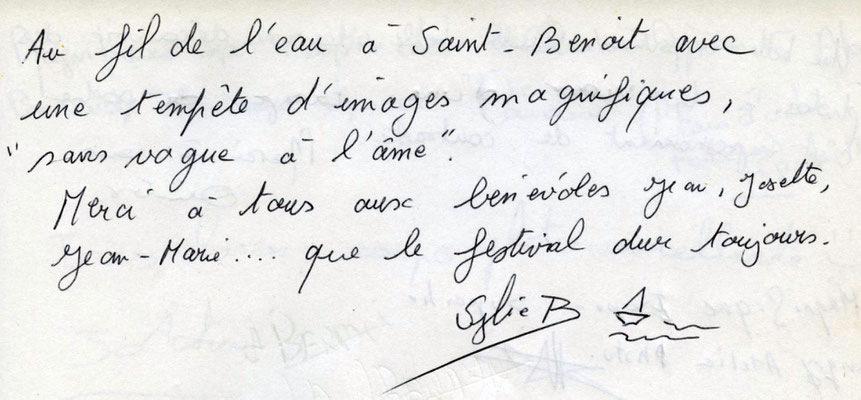 Au fil de l'eau à Saint-Benoit avec
une tempête d'images magnifiques,
"sans vague à l'âme".
Merci à tous aux benevoles Jean, Josette,
Jean-Marie.... que le festival dur toujours.
Sylvie B